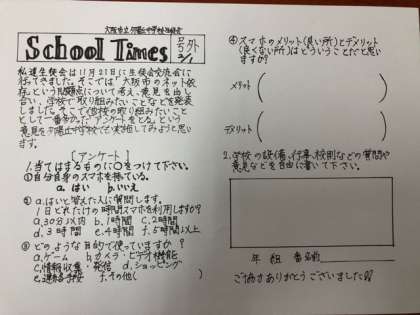 大阪市立夕陽丘中学校生徒会
School Times
号外
2/1
私達生徒会は11月21日に生徒会交流会に
行ってきました。そこでは「大阪市のネット依
存」という問題点について考え、意見を出し
合い、学校で取り組みたいことなどを発表
しました。そこで他校の取り組みたいこと
として一番多かった「アンケートをとる」という
意見を夕陽丘中学校でも実施してみようと思い
ます。
[アンケート]
1.当てはまるものに○をつけて下さい。
①自分自身のスマホを持っている。
a. はい b. いいえ
② a.はいと答えた人に質問します。
1日どれだけの時間スマホを利用しますか?
a.30分以内 b.1時間 c.2時間
d.3時間 e.4時間 f.5時間以上
③ どのような目的で使っていますか?
a.ゲーム b.カメラ・ビデオ機能
c.情報収集・発信 d.ショッピング
e.連絡手段 f.その他( )
④ スマホのメリット(良い所)とデメリット
(良くない所)はどういうことだと思い
ますか?
メリット ( )
デメリット ( )
2.学校の設備、行事、校則などの質問や
意見などを自由に書いて下さい。
年 組 番 名前
ご協力ありがとうございました